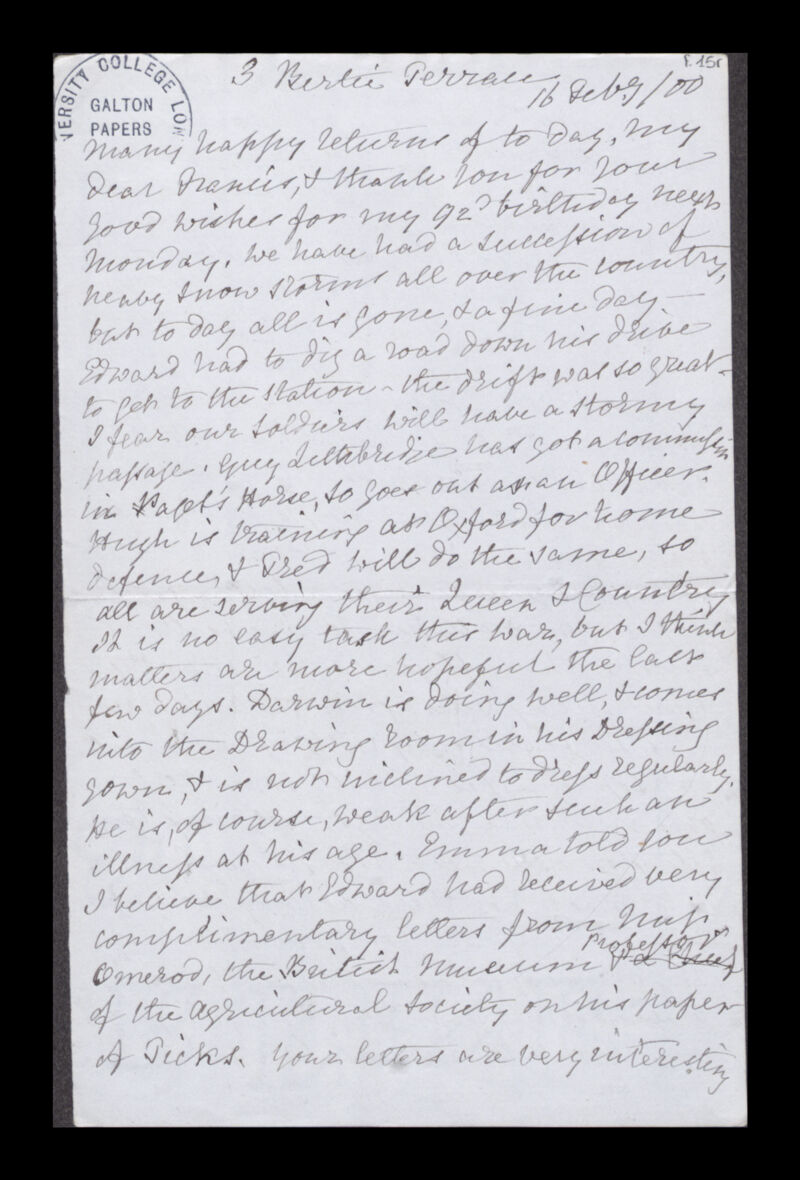 f. 15r
UNIVERSITY COLLEGE LON
GALTON
PAPERS
3 Bertie Terrace
16 Feby/00
Many happy returns of to day, my
dear Francis, & thank you for your
good wishes for my 92d birthday next
Monday. We have had a succession of
heavy snow storms all over the country,
but to day all is gone, & a fine day –
Edward had to dig a road down his drive
to get to the station – the drift was so great –
I fear our soldiers will have a stormy
passage. Guy Lethbridge has got a commission
in Paget's Horse, so goes out as an Officer.
Hugh is training at Oxford for home
defence, & Fred will do the same, so
all are serving their Queen & Country
It is no easy task this war, but I think
matters are more hopeful the last
few days. Darwin is doing well, & comes
into the Drawing room in his Dressing
gown, & is not inclined to dress regularly.
He is, of course, weak after such an
illness at his age. Emma told you
I believe that Edward had received very
complimentary letters from Miss
Professor
Omerod, the British Museum &
of the Agricultural Society on his paper
of Ticks. Your letters are very interesting